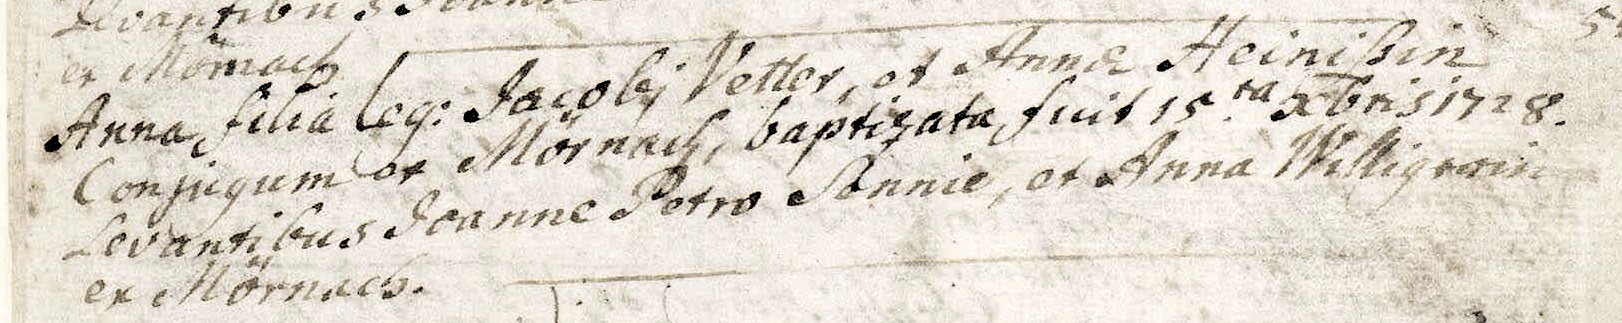 Levantibus Joanne
ex Mörnach
Anna filia leg: Jacobi Vetter, et Annæ Heinisin
Conjugum ex Mörnach, baptizata fuit 15.ta Xbris 1728.
Levantibus Joanne Petro Sennie, et Anna
ex Mörnach.